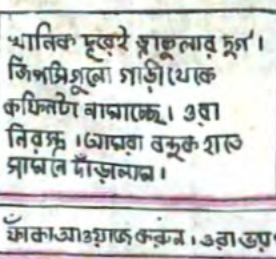 খানিক দূরেই ড্রাকুলার দুর্গ।
জিপসিগুলো গাড়ী থেকে
কফিনটা নামাচ্ছে। ওরা
নিরস্ত্র। আমরা বন্দুক হাতে
সামনে দাঁড়ালাম।
ফাঁকা আওয়াজ করুন। ওরা ভয়